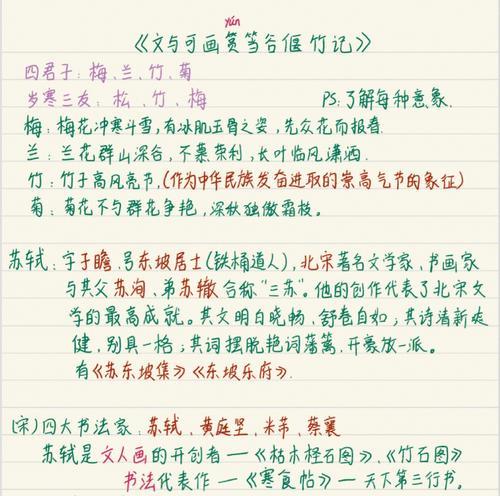 yún
《文与可画筼筜谷偃竹记》
四君子：梅、兰、竹、菊
岁寒三友：松、竹、梅 PS：了解每种意象.
梅：梅花冲寒斗雪，有冰肌玉骨之姿，先众花而报春.
兰：兰花群山深谷，不慕荣利，长叶临风潇洒.
竹：竹子高风亮节，(作为中华民族发奋进取的崇高气节的象征)
菊：菊花不与群花争艳，深秋独傲霜枝。
苏轼：字子瞻，号东坡居士(铁桶道人)，北宋著名文学家、书画家
与其父苏洵、弟苏辙合称“三苏”。他的创作代表了北宋文
学的最高成就。其文明白晓畅，舒卷自如；其诗清新爽
健，别具一格；其词摆脱艳词藩篱，开豪放一派。
有《苏东坡集》《东坡乐府》.
(宋)四大书法家：苏轼、黄庭坚、米芾、蔡襄
苏轼是文人画的开创者 —《枯木怪石图》、《竹石图》
书法代表作 —《寒食帖》— 天下第三行书。